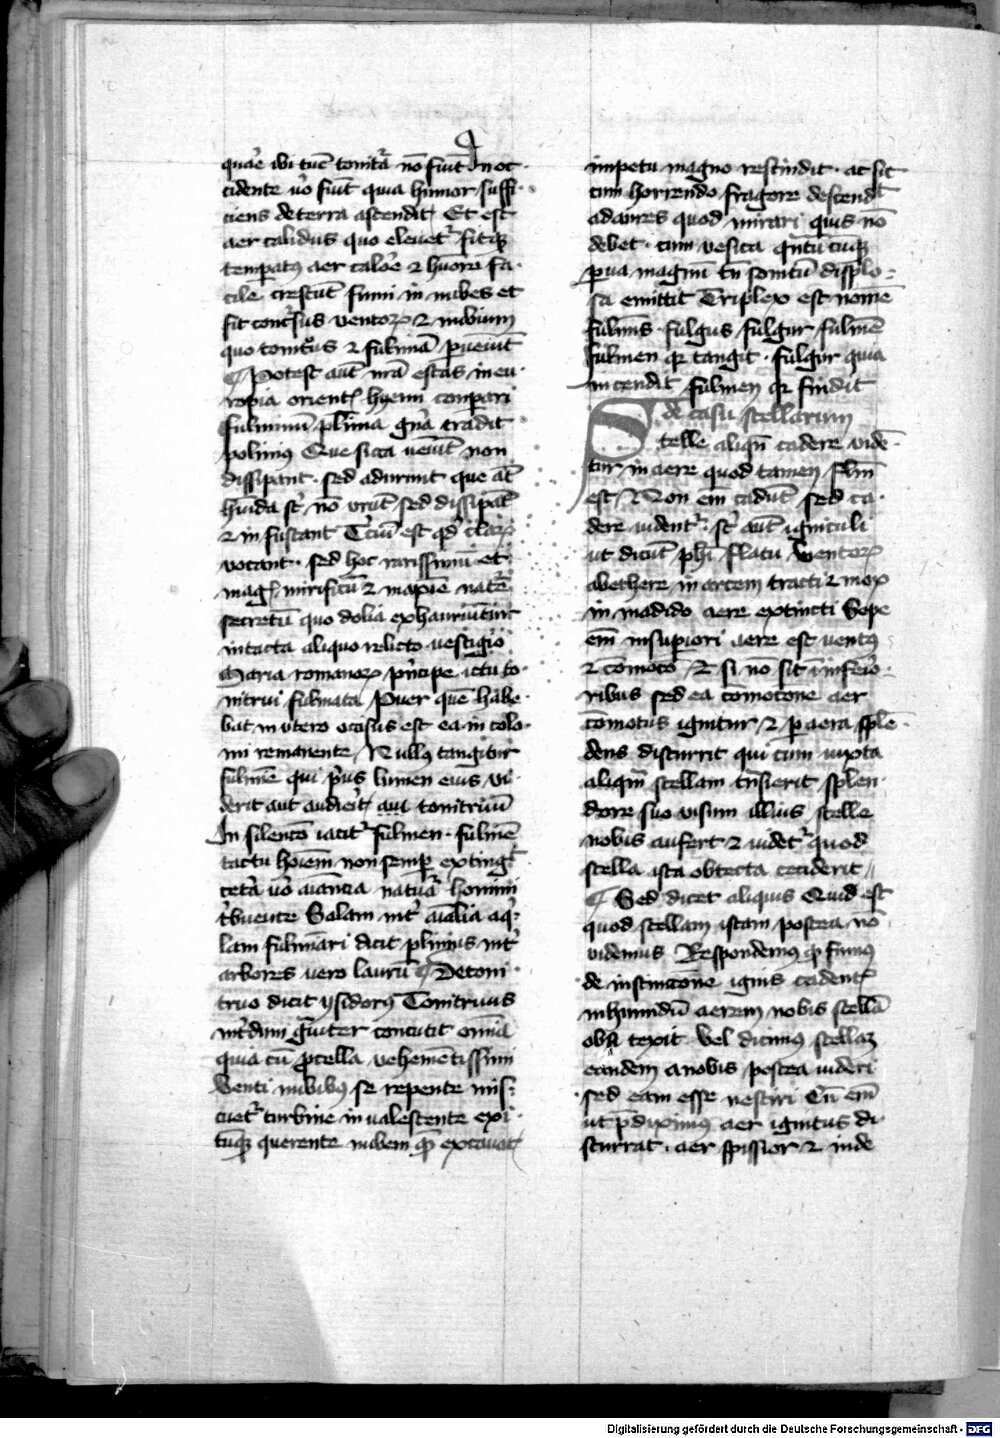 quare ibi tūc tonitrā nō fiūt In oc-
cidente vo fiūt quia humor suffi-
ciens de terra ascendit Et est
aer calidus quo eleuet fitqꝫ
temperatꝰ aer calore ⁊ humore fa-
cile crescūt fumi in nubes et
fit concursus ventoꝝ ⁊ nubium
quo tonitrus ⁊ fulmīa ꝓueniūt
¶ Potest aūt nrā estas in eu-
ropia orient hyemi comperi
fulminū plīma gna tradit
polinius Que sicca veniūt non
dissipant sed adurunt que aūt
huīda st nō vrūt sed dissipāt
⁊ infuscant Tciū est qd claꝝ
vocant sed hoc rarissimū et
mag mirificū ⁊ maxīe nature
secretū quo dolia exhauriuntur
intacta aliquo relicto vestigio
Maria romanoꝝ princeps ictu to-
nitrui fulmata Puer quē habe-
bat in vtero occisus est ea in colo-
mi remanente Nullꝰ tangitur
fulmīe qui prius lumen eius vi-
derit aut audierit aut tonitruū
In silencō iacit fulmen fulmē
tactu hoīem non semper extingt
cetā vo aīancia natura homini
tribuente Solam int aīalia aqi-
lam fulminari dicit plinius int
arbores vero laurū ¶ De toni-
truo dicit ysidorꝰ Tonitruus
int̄dum gͣuiter concutit omīa
quia cū ꝓcella vehemētissimi
venti nubibꝰ se repente mis-
cuet turbine inualescente exi-
tumqꝫ querente nubem quam excauat
impetu magno rescindit ac sic
cum horrendo fragore descendit
ad aures quod mirari quis nō
debet cum vesica qntūcūqꝫ
parua magnū tn sonitū displo-
sa emittit Triplex est nomē
fulmīs fulgus fulgur fulmē
fulmen qꝛ tangit fulgur quia
incendit fulmen qꝛ findit
de casu stellarum
Stelle aliqn cadere viden-
tur in aere quod tamen flm
est Non em cadūt sed ca-
dere vident st aūt igniculi
ut dicūt phi flatu ventoꝝ
ab ethere in arcem tracti ⁊ mox
in madido aere extincti Sepe
em in supiori aere est ventꝰ
⁊ cōmoto ⁊ si nō sit ī inferio-
ribus sed ea comotōne aer
cōmotus ignitur ⁊ p aera splē-
dens discurrit qui cum iuxta
aliqm stellam trāsierit splen-
dore suo visum illius stelle
nobis aufert ⁊ videt quod
stella ista obtecta ceciderit
¶ Sed dicet aliquis Quid est
quod stellam istam postea nō
videmus Respondemꝰ qꝫ fumꝰ
de instinctōne ignis cadentꝭ
in humidū aerem nobis stellā
obtexit Vel dicimꝰ stellaꝫ
eandem a nobis postea videri
sed eam esse nesciri Cū em
ut p̄diximꝰ aer ignitus di-
scurrat aer spissior ⁊ inde
Digitalisierung gefördert durch die Deutsche Forschungsgemeinschaft - DFG